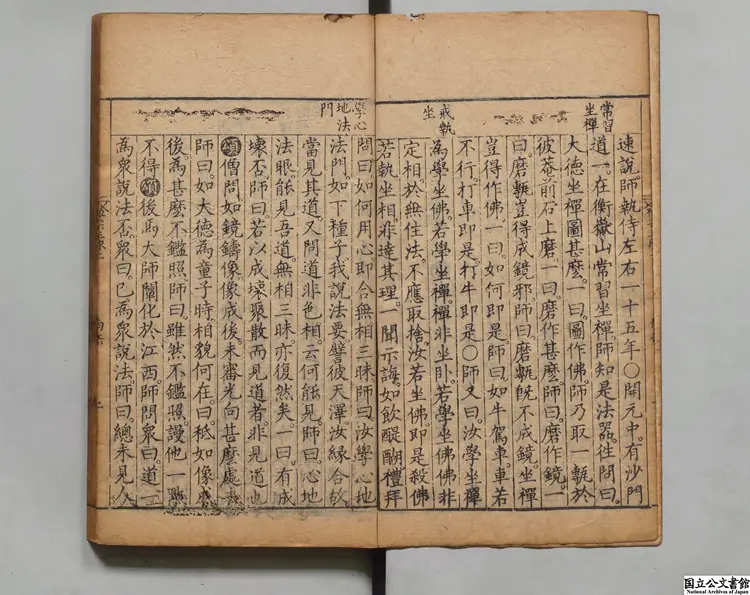 常習
坐禪
速說師執侍左右一十五年〇開元中有沙門
道一在衡嶽山常習坐禪師知是法器徃問曰
大德坐禪圖甚麼一曰圖作佛師乃取一甎於
彼菴前石上磨一曰磨作甚麼師曰磨作鏡一
曰磨甎豈得成鏡邪師曰磨甎旣不成鏡坐禪
豈得作佛一曰如何即是師曰如牛駕車車若
不行打車即是打牛即是〇師又曰汝學坐禪
戒執
坐
為學坐佛若學坐禪禪非坐卧若學坐佛佛非
定相於無住法不應取捨汝若坐佛即是殺佛
若執坐相非達其理一聞示誨如飲醍醐禮拜
學心
地法
門
問曰如何用心即合無相三昧師曰汝學心地
法門如下種子我說法要譬彼天澤汝緣合故
當見其道又問道非色相云何能見師曰心地
法眼能見吾道無相三昧亦復然矣一曰有成
壞否師曰若以成壞聚散而見道者非見道也
僧問如鏡鑄像像成後未審光向甚麼處
師曰如大德為童子時相貌何在曰秪如像成
後為甚麼不鑑照師曰雖然不鑑照謾他一點
不得後馬大師闡化於江西師問衆曰道一
為衆說法否衆曰已為衆說法師曰總未見人
国立公文書館
National Archives of Japan